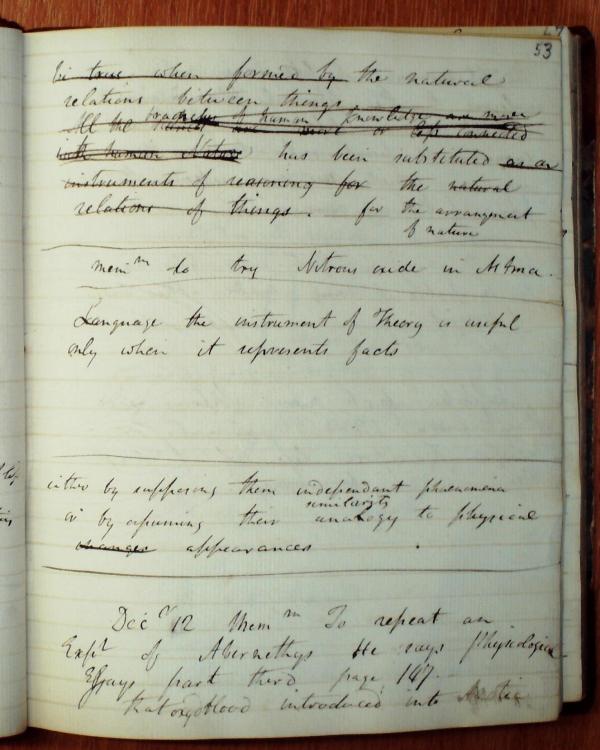 53
be true when formed by the natural
relations between things
branches of human knowledge are more
All the or less connected
with human Nature has been substituted as an
instruments of reasoning for the natural
relations of things. for the arrangement
of nature
mem^m to try Nitrous oxide in Astma.
Language the instrument of Theory is useful
only when it represents facts
either by supposing them independant phænomena
similarity
or by assuming their analogy to physical
changes appearances
Dec^r 12 Mem^m To repeat an
Exp^t of Abernethys He says Physiological
Essays part third page 147.
that oxy blood introduced into